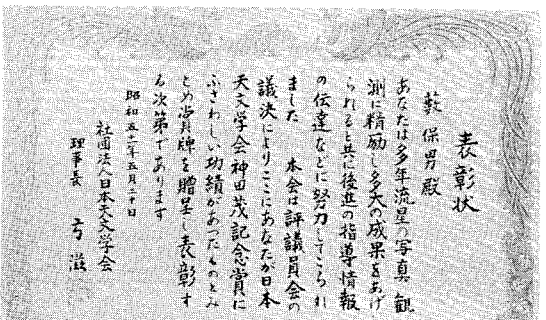 表彰状
藪 保男殿
あなたは多年流星の写真観
測に精励し多大の成果をあげ
られると共に後進の指導情報
の伝達などに努力してこられ
ました 本会は評議員会の
議決によりここにあなたが日本
天文学会神田茂記念賞に
ふさわしい功績があったものとみ
とめ賞牌を贈呈し表彰す
る次第であります
昭和五十一年五月二十日
社団法人日本天文学会
理事長 弓 滋